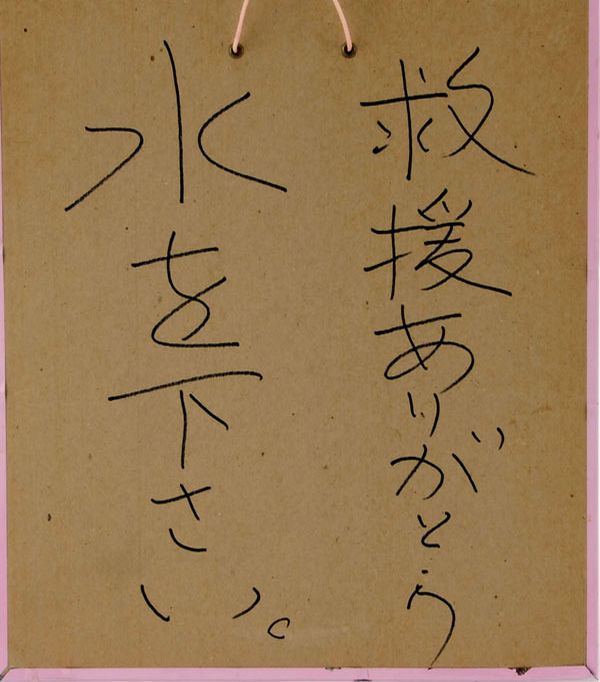 救援ありがとう
水を下さい。